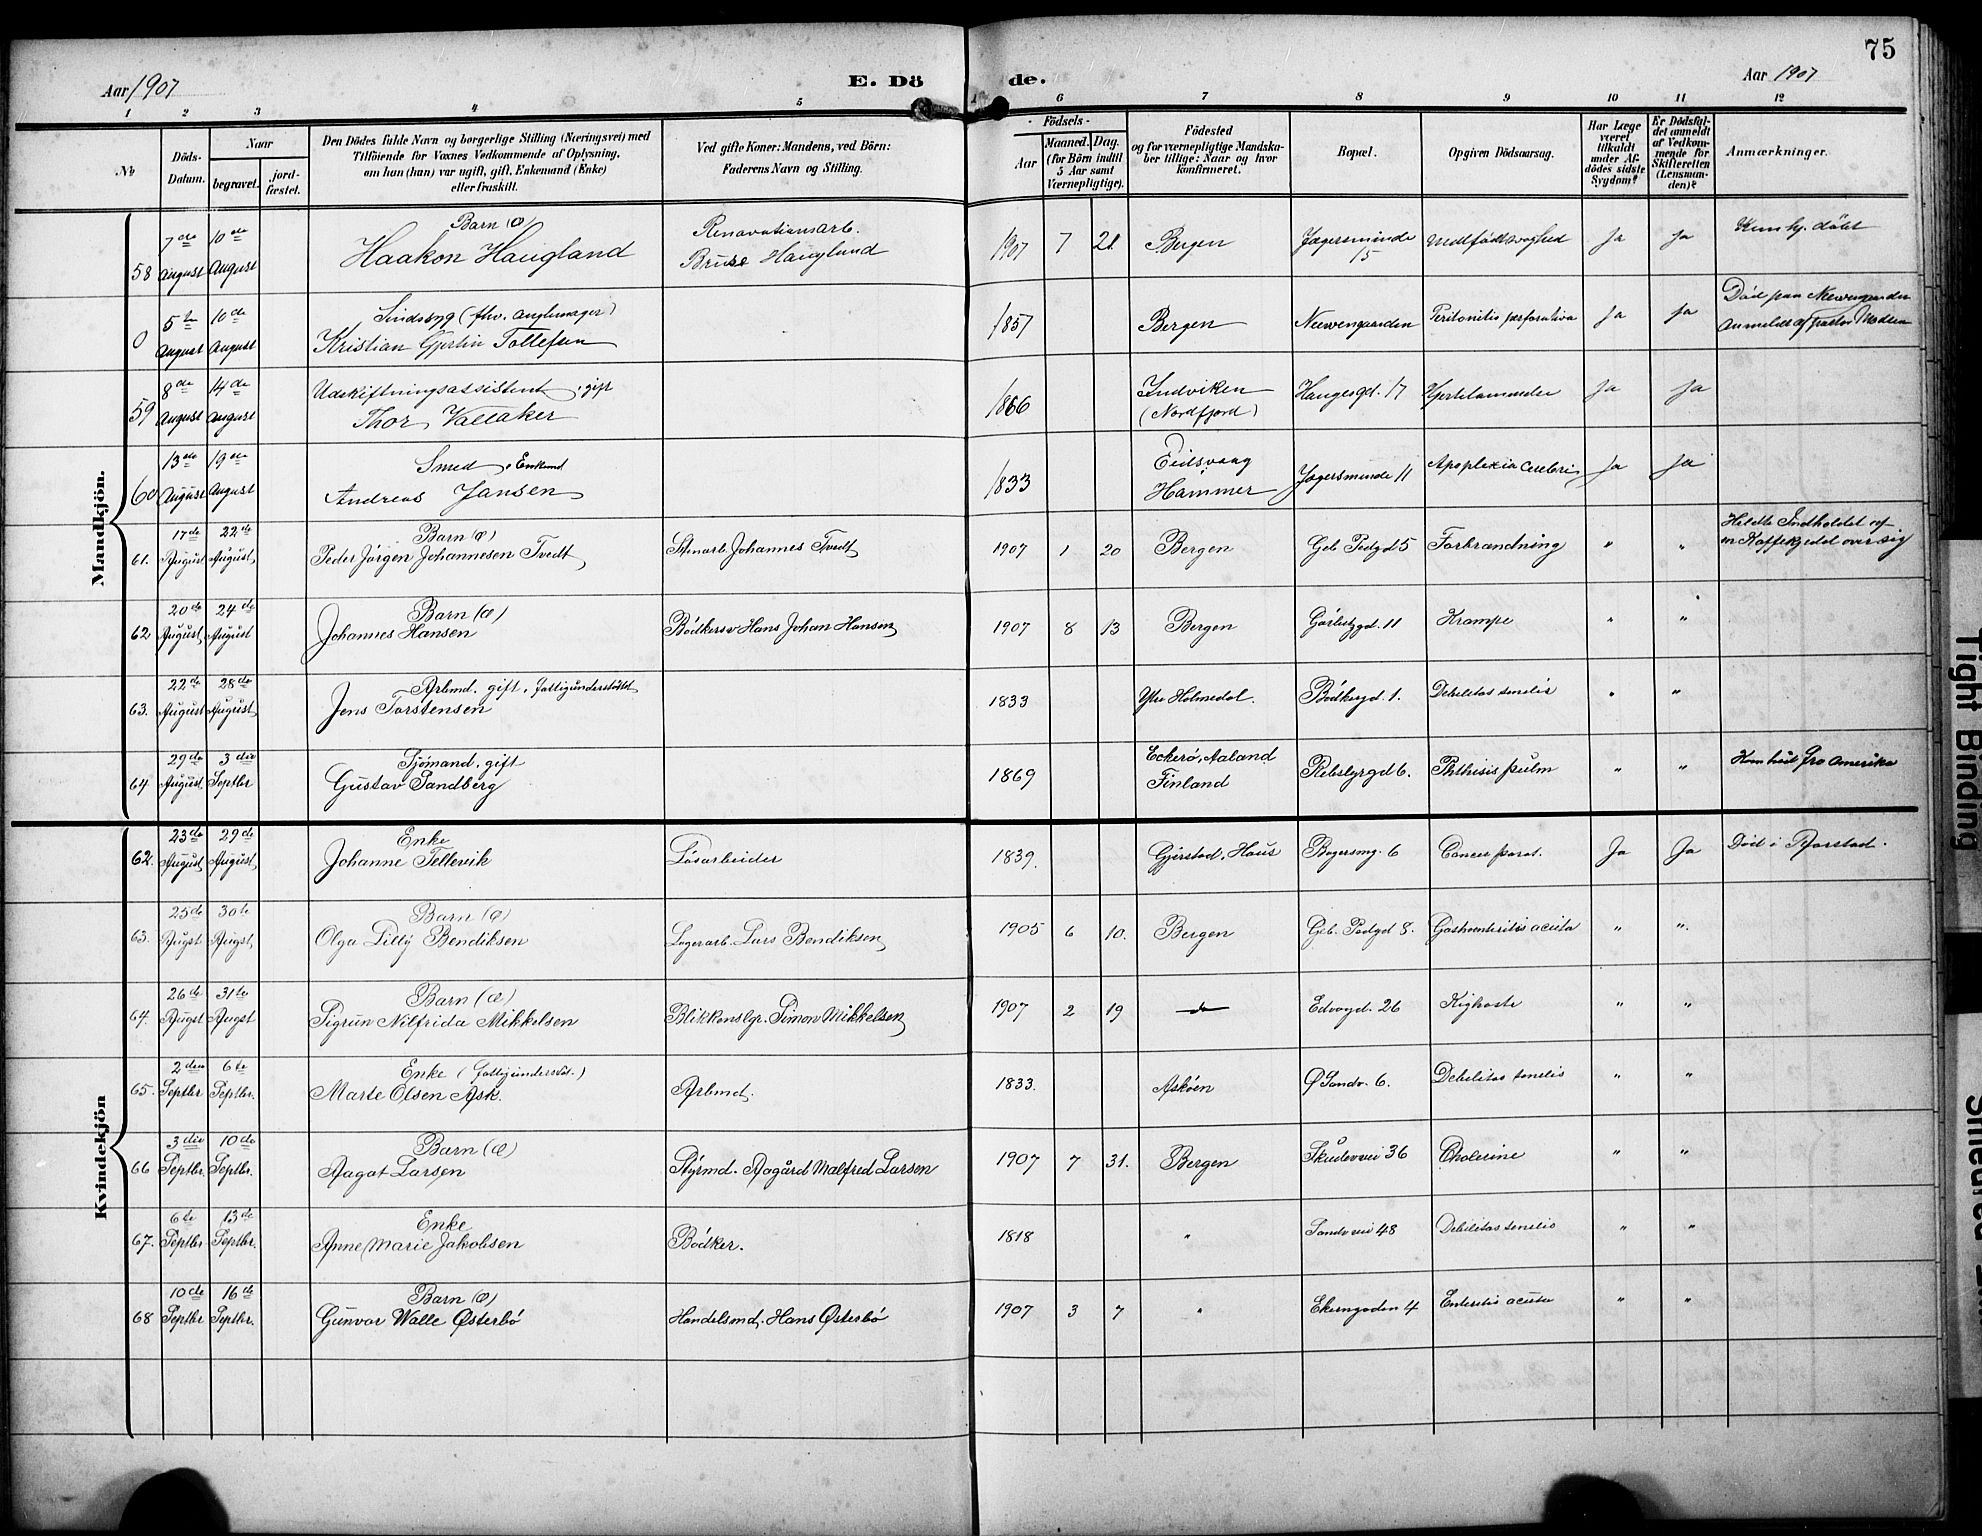 75
Aar 1907
E. Dö
de.
Aar 1907
1 2 3 4 5 6 7 8 9 10 11 12
№
Döds-
Datum.
Naar
begravet.
jord-
fæstet.
Den Dödes fulde Navn og borgerlige Stilling (Næringsvei) med
Tilföiende for Voxnes Vedkommende af Oplysning,
om han (hun) var ugift, gift, Enkemand (Enke)
eller fraskilt.
Ved gifte Koner: Mandens, ved Börn:
Faderens Navn og Stilling.
- Födsels -
Aar
Maaned. Dag.
(for Börn indtil
5 Aar samt
Værnepligtige).
Födested
og for værnepligtige Mandska-
ber tillige: Naar og hvor
konfirmeret.
Bopæl.
Opgiven Dödsaarsag.
Har Læge
været
tilkaldt
under Af-
dödes sidste
Sygdom?
Er Dödsfal-
det anmeldt
af Vedkom-
mende for
Skifteretten
(Lensman-
den)?
Anmærkninger.
Mandkjön.
58 7de August 10de August
Barn (Æ)
Haakon Haugland
Renovationsarb.
Haugland
1907 7 21 Bergen
Jægersminde 15
Medfödt svaghed Ja Ja
Kun hj. döbt
0 5te August 10de August
Sindssyg (fhv.
Kristian Gjertin Tollefsen
1857 Bergen Neevengaarden Peritonitis perforativa Ja Ja
Död paa Neevengaarden
Anmeldt af Pastor
59 8de August 14de August
Udskiftningsassistent, gift
Thor Vallaker
1866 Indviken
(Nordfjord)
Haugesgd. 17 Hjertelammelse Ja Ja
60 13de August 19de August
Smed, Enkemd
Andreas Jansen
1833 Eidsvaag
Hammer
Jægersminde 11 Apoplexia cerebri Ja Ja
61. 17de August 22de August
Barn (Æ)
Peder Jörgen Johannesen Tvedt
Stenarb. Johannes Tvedt
1907 1 20 Bergen Geb. Pedgd 5 Forbrænding " "
Heldte Indholdet af
en Kaffekjedel over sig
62 20de August 24de August
Barn (Æ)
Johannes Hansen
Bödkersv Hans Johan Hansen
1907 8 13 Bergen 11 Krampe " "
63. 22de August 28de August
Arbmd. gift, fattigunderstöttet
Jens Torstensen
1833 Ytre Holmedal. Bödkergd. 1. Debilitas senilis " "
64 29de August 3die Septbr
Sjömand, gift
Gustav Sandberg
1869 Eckerö, Aaland
Finland
Rebslgrgd 6. Phthisis pulm " "
Kom hid fra Amerika
Kvindekjön
62. 23de August 29de August
Enke
Johanne Tellevik
Lösarbeider
1839. Gjerstad, Haus 6 Cancer Ja Ja
63. 25de Augst 30te Augst
Barn (Æ)
Olga Lilly Bendiksen
Lagerarb. Lars Bendiksen
1905 6 10. Bergen Geb. Pedgd 8. Gastroenteritis acuta " "
64. 26de Augst 31te Augst
Barn (Æ)
Sigrun Nilfrida Mikkelsen
Blikkenslgr. Simon Mikkelsen
1907 2 19 Edvgd. 26 Kighoste " "
65. 2den Septbr 6te Septbr.
Enke (fattigunderstöt.)
Marte Olsen Ask.
Arbmd.
1833. Asköen Ø Sandv. 6. Debilitas senilis " "
66 3die Septbr. 10de Septbr.
Barn (Æ)
Aagot Larsen
Styrmd. Aagård Malfred Larsen
1907 7 31. Bergen Skudevvei 36 Cholerine " "
67. 6te Septbr. 13de Septbr.
Enke
Anne Marie Jakobsen
Bödker.
1818 " Sandvvei 48 Debilitas senilis " "
68 10de Septbr 16de Septbr.
Barn (Æ)
Gunvor Walle Österbö
Handelsmd. Hans Österbö
1907 3 7 " Ekerngaden 4 Enteritis acuta " "
Tight Binding